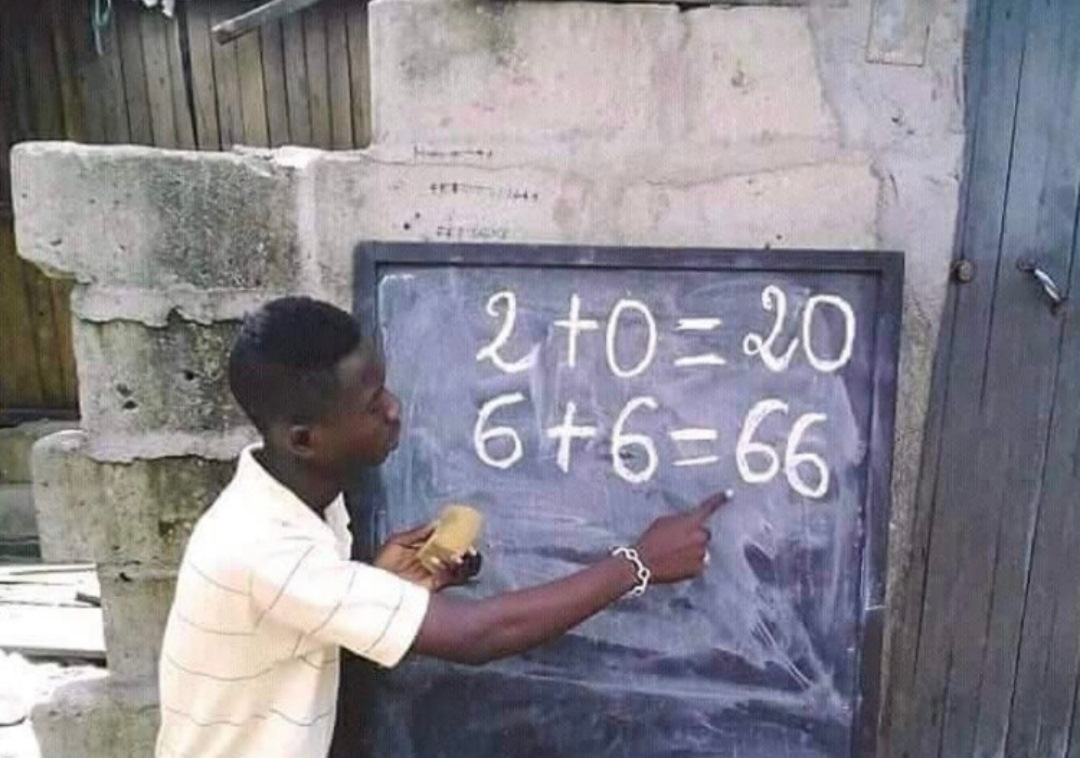 2 + 0 = 20
6 + 6 = 66